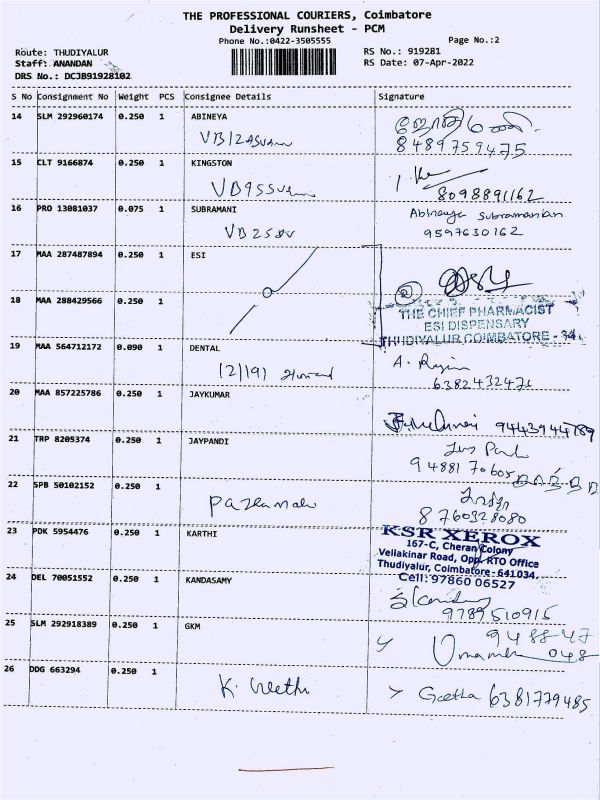 THE PROFESSIONAL COURIERS, Coimbatore
Delivery Runsheet - PCM
Phone No.:0422-3505555
Page No.:2
Route: THUDIYALUR
RS No.: 919281
Staff: ANANDAN
RS Date: 07-Apr-2022
DRS No.: DCJB91928102
S No Consignment No Weight PCS Consignee Details Signature
14 SLM 292960174 0.250 1 ABINEYA
8489759475
15 CLT 9166874 0.250 1 KINGSTON
8098891162
16 PRO 13081037 0.075 1 SUBRAMANI
Abineya Subramanian
9597630162
17 MAA 287487894 0.250 1 ESI
18 MAA 288429566 0.250 1
THE CHIEF PHARMACIST
ESI DISPENSARY
THUDIYALUR COIMBATORE - 34.
19 MAA 564712172 0.090 1 DENTAL
12/191
6382432471
20 MAA 857225786 0.250 1 JAYKUMAR
9443944789
21 TRP 8205374 0.250 1 JAYPANDI
9488170605
22 SPB 50102152 0.250 1
8760328080
23 PDK 5954476 0.250 1 KARTHI
KSR XEROX
167-C, Cheran Colony
Vellakinar Road, Opp. RTO Office
Thudiyalur, Coimbatore - 641034.
Cell: 97860 06527
24 DEL 70051552 0.250 1 KANDASAMY
9789510915
25 SLM 292918389 0.250 1 GKM
94 88-47
048
26 DDG 663294 0.250 1
K. Geetha
Geetha 6381779485